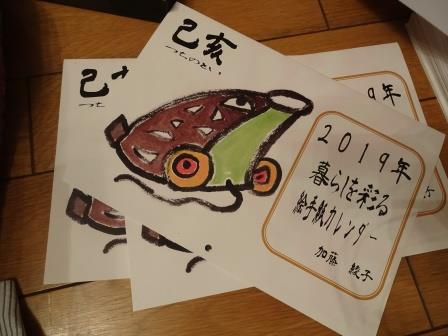 己亥
つちのとい
2019年
暮らしを彩る
絵手紙カレンダー
加藤 綾子
己
つち
9年